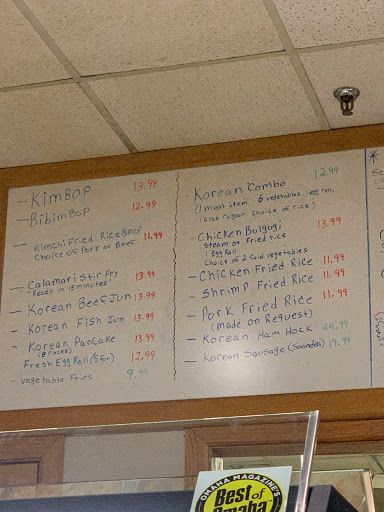 - KimBOP 13.99
- BibimBOP 12.99
- Kimchi Fried Rice (spicy)
Choice of Pork or Beef 11.99
- Calamari Stir Fry 13.99
"Ready in 15minutes"
- Korean Beef Jun 13.99
- Korean Fish Jun 13.99
- Korean Pancake 13.99
(8 pieces)
Fresh Egg Roll (5Ea) 12.99
- Vegetable Fries 9.99
Korean Combo 12.99
(1 meat item, 6 vegetables, 1 egg roll,
1 crab ragoon choice of rice)
Chicken Bulgogi 13.99
Steam or Fried rice
1 Egg Roll
Choice of 2 Cold vegetables
- Chicken Fried Rice 11.99
- Shrimp Fried Rice 11.99
- Pork Fried Rice 11.99
(Made on Request)
- Korean Ham Hock 24.99
- Korean Sausage (Soondae) 19.99
OMAHA MAGAZINE'S
Best of
Omaha